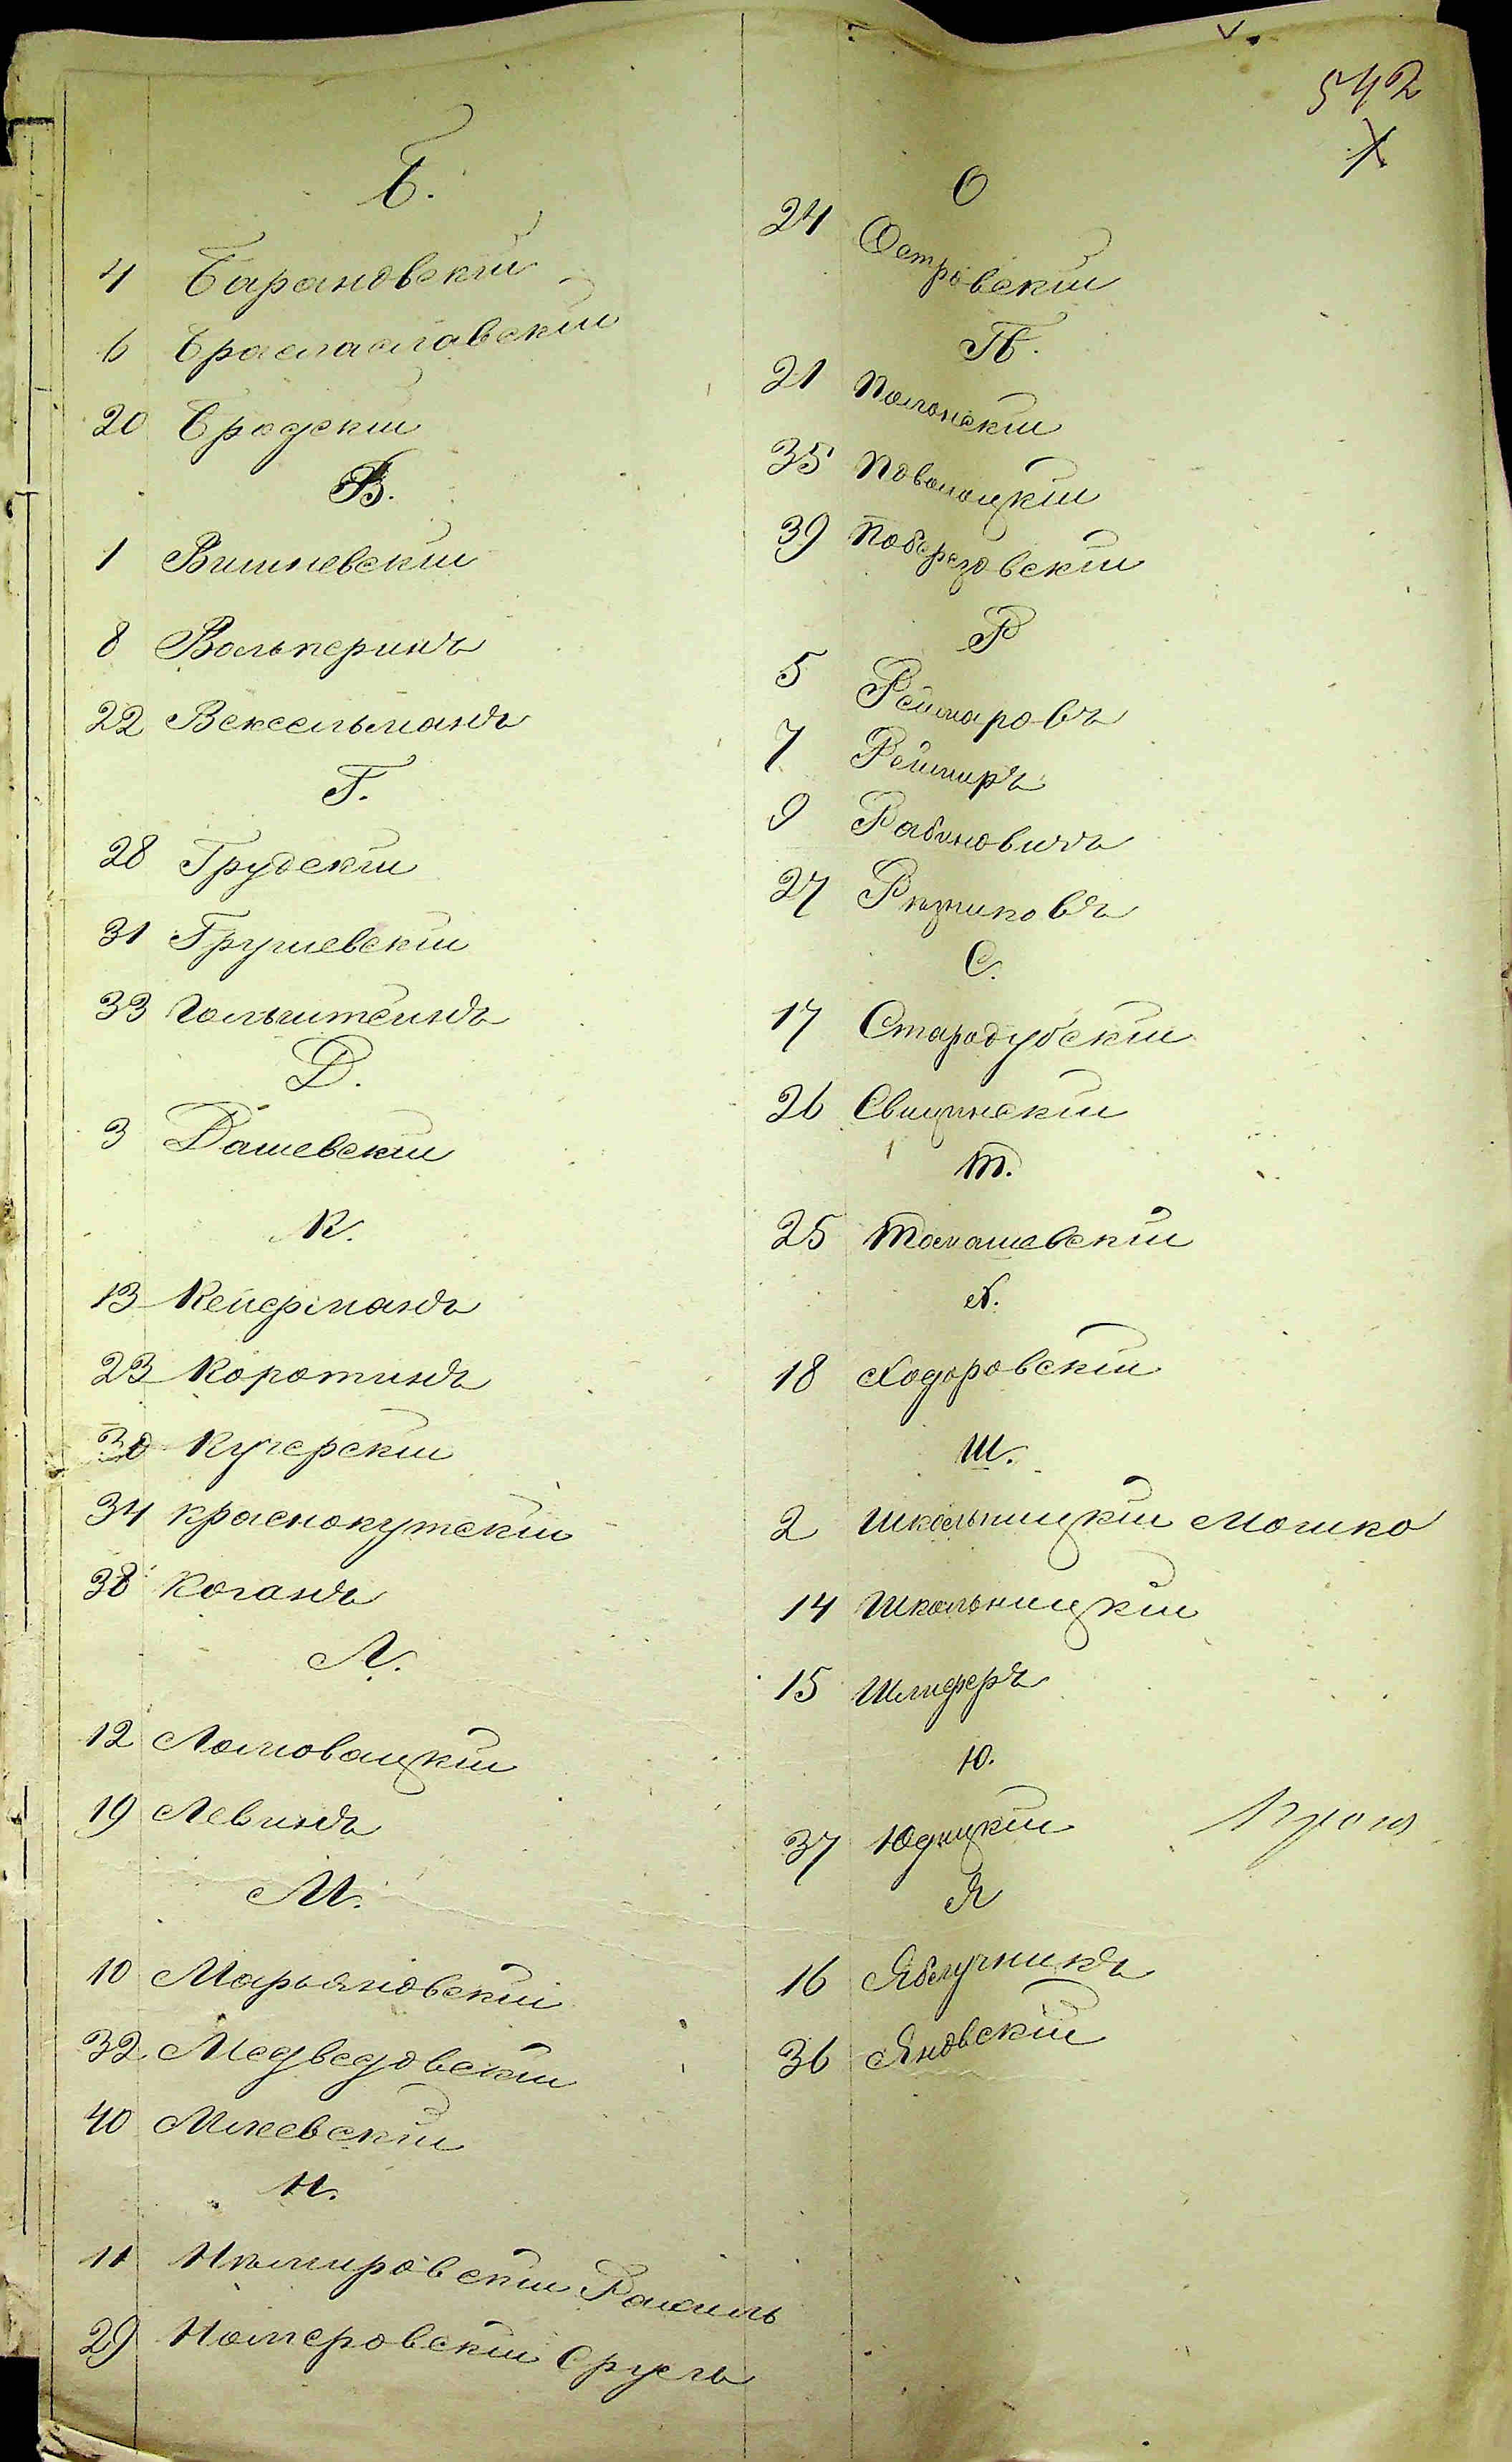 542
Б.
4 Барановскій
6 Браславскій
20 Бродскій
В.
1 Вишневскій
8 Вольперинъ
22 Вексельманъ
Г.
28 Грудскій
31 Грушевскій
33 Гольштейнъ
Д.
3 Дашевскій
К.
13 Кейерманъ
23 Коротинъ
30 Кучерскій
34 Краснокутскій
38 Коганъ
Л.
12 Ломовацкій
19 Левинъ
М.
10 Марьяновскій
32 Медведовскій
40 Мжевскій
Н.
11 Немировскій Рахиль
29 Немеровскій Сруль
О
24 Островскій
П.
21 Полонскій
35 Поволоцкій
39 Поберезовскій
Р
5 Реймаровъ
7 Реймиръ
9 Рабиновичъ
27 Ризниковъ
С.
17 Стародубскій
26 Свицинскій
Т.
25 Томашевскій
Х.
18 Ходоровскій
Ш.
2 Школьницкій Мошко
14 Школьницкій
15 Шлиферъ
Ю.
37 Юдицкій
Я
16 Яблучникъ
36 Яновскій